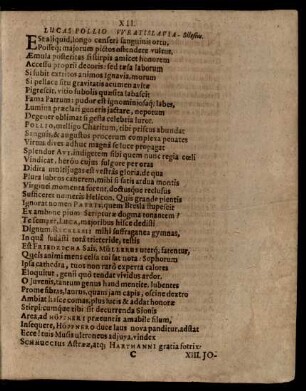 XII.
LUCAS POLLIO VVRATISLAVIA-Silesius.
Est aliquid, longo censeri sanguinis ortu,
Posseq; majorum pictos ostendere vultus,
Æmula posteritas si stirpis amicet honorem
Accessu proprii decoris: sed tæsa laborum
Si subit extinctos animos ignavia, morum
Si pellaces situ gravitas acumenq; avitæ
Pigrescit, vitio subolis quæsita labascit
Fama Patrum: pudor est ignominiosaq; labes,
Lumina præclari generis jactare, neporem
Degener oblimat si gesta celebria luxu.
POLLIO, melligo Charitum, tibi pressus abundat
Sanguis, & angustus procerum complexa penates
Virtus dives adhuc magnæ se luce propagat
Splendor Avi, indigetem sibi quem nunc regia cœli
Vindicat, heroo cujus fulgure per oras
Didita multijugas est vestras gloria, de qua
Plura lubens canerem, mihi si satis ardua montis
Virginei momenta forent, doctusque reclusis
Sufficeret numeris Helicon. Quis grande pientis
Ignorat nomen PATRIS, quem Breslæ stupescit
Ex ambone pium Scripturæ dogma tonantem?
Te semper, Luca, majoribus hisce dedisti
Dignum.
In quâ sudasti totâ trieteride, testis
Est FRIDERICHI Sals, MÜLLERUS uterq;, fatentur,
Queis animi mens celsa tui sat nota: Sophorum
Ipsa cathedra, tuos non rarò experta calores
Eloquitur, genii quò tendat vividus ardor.
O juvenis, tantum genus hand mentite, lubentes
Prome fibras, laurus, quam jam capis, oscine dextro
Ambiat hasce comas, plus lucis & addat honore
Stirpi: cumque tibi sit decurrenda Sionis
Area, ad HÖPFNERI præeuntis amabile filum,
Insequere, HÖPFNERO duce laus nova panditur, adstat
Ecce! tuis Musis ulteronеus adjuga, vindex
SCHMUCCIUS Astrææ, atq; HARTMANNI gratia fotrix.
C XIII. JO-